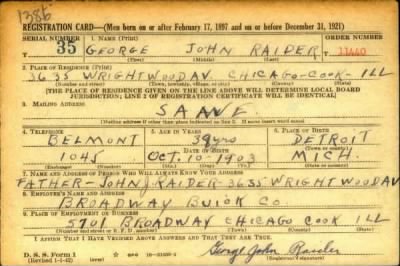 1386
REGISTRATION CARD—(Men born on or after February 17, 1897 and on or before December 31, 1921)
SERIAL NUMBER 1. NAME (Print) ORDER NUMBER
35 GEORGE JOHN RAIDER 11440
(First) (Middle) (Last)
2. PLACE OF RESIDENCE (Print)
3635 WRIGHTWOOD AV. CHICAGO-COOK-ILL
(Number and street) (Town, township, village, or city) (County) (State)
[THE PLACE OF RESIDENCE GIVEN ON THE LINE ABOVE WILL DETERMINE LOCAL BOARD
JURISDICTION; LINE 2 OF REGISTRATION CERTIFICATE WILL BE IDENTICAL]
3. MAILING ADDRESS
SAME
[Mailing address if other than place indicated on line 2. If same insert word same]
4. TELEPHONE 5. AGE IN YEARS 6. PLACE OF BIRTH
BELMONT 38 yrs DETROIT
DATE OF BIRTH (Town or county)
1045 OCT. 10-1903 MICH.
(Exchange) (Number) (Mo.) (Day) (Yr.) (State or country)
7. NAME AND ADDRESS OF PERSON WHO WILL ALWAYS KNOW YOUR ADDRESS
FATHER-JOHN J RAIDER-3635 WRIGHTWOOD AV
8. EMPLOYER'S NAME AND ADDRESS
BROADWAY BUICK CO
9. PLACE OF EMPLOYMENT OR BUSINESS
5701 BROADWAY CHICAGO COOK ILL
(Number and street or R. F. D. number) (Town) (County) (State)
I AFFIRM THAT I HAVE VERIFIED ABOVE ANSWERS AND THAT THEY ARE TRUE.
D. S. S. Form 1
(Revised 1-1-42) (over) George John Raider
(Registrant's signature)